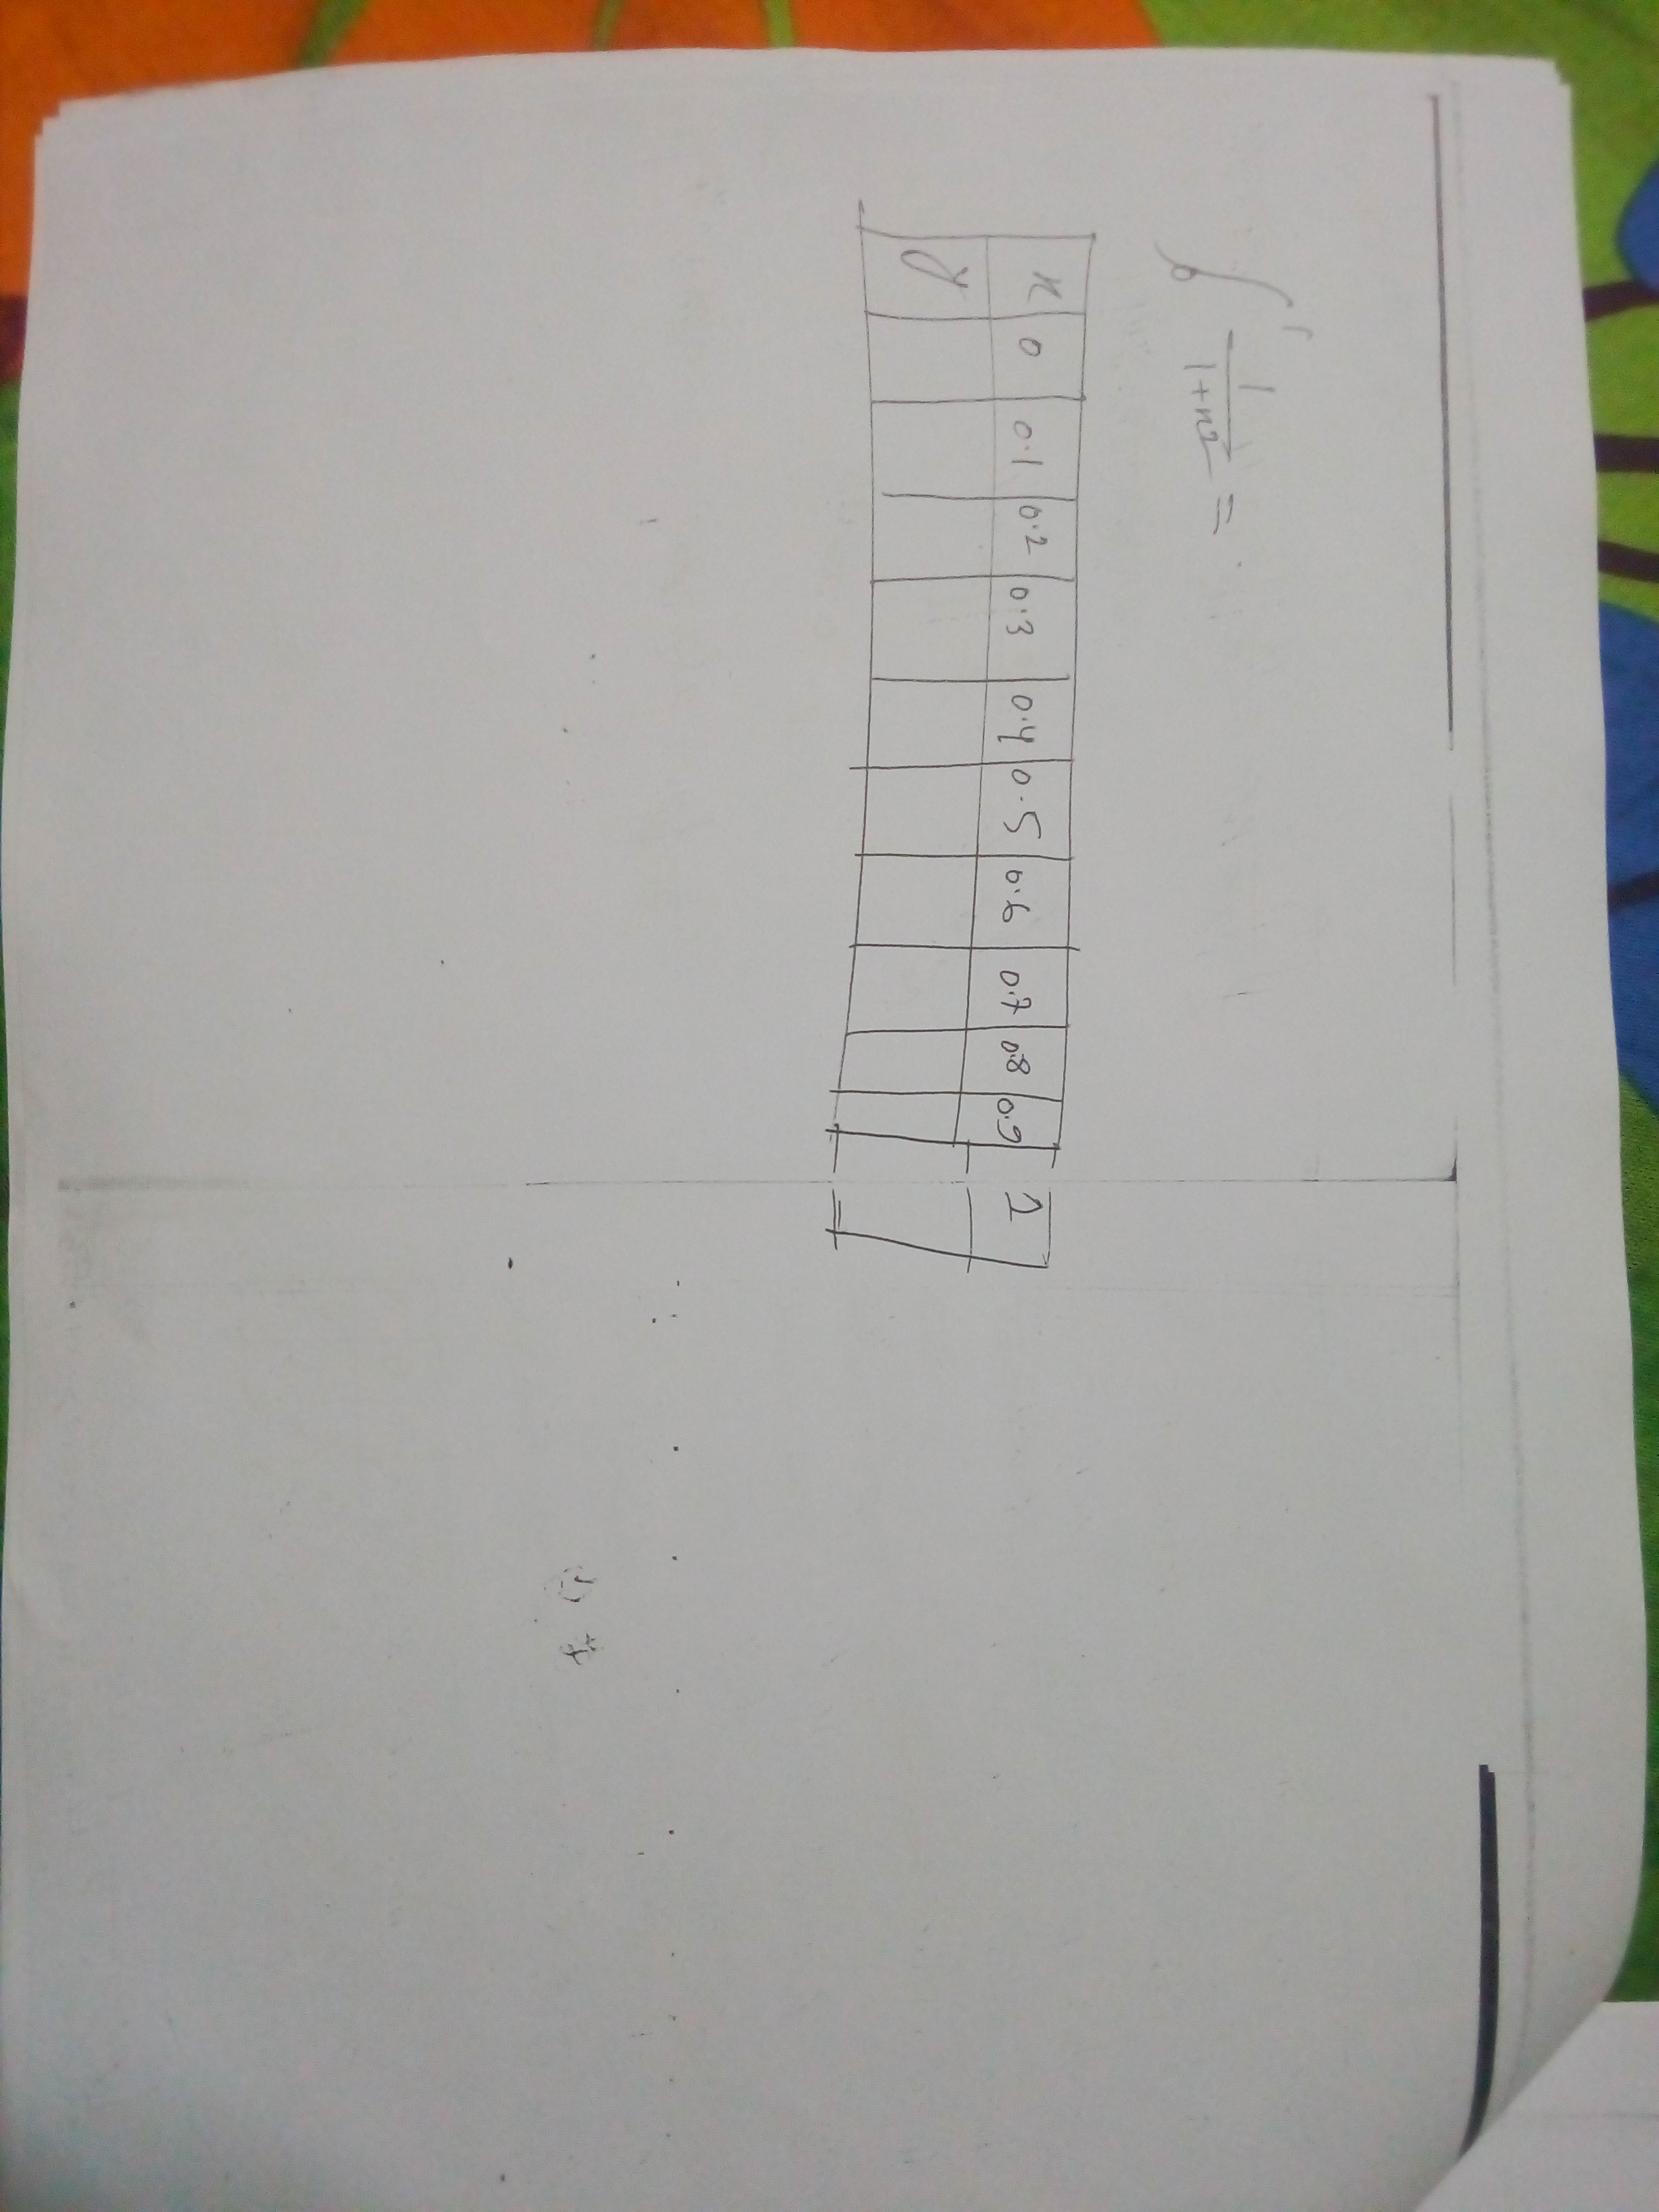 ∫₀¹ 1/(1+x²) =
x 0 0.1 0.2 0.3 0.4 0.5 0.6 0.7 0.8 0.9 1
y